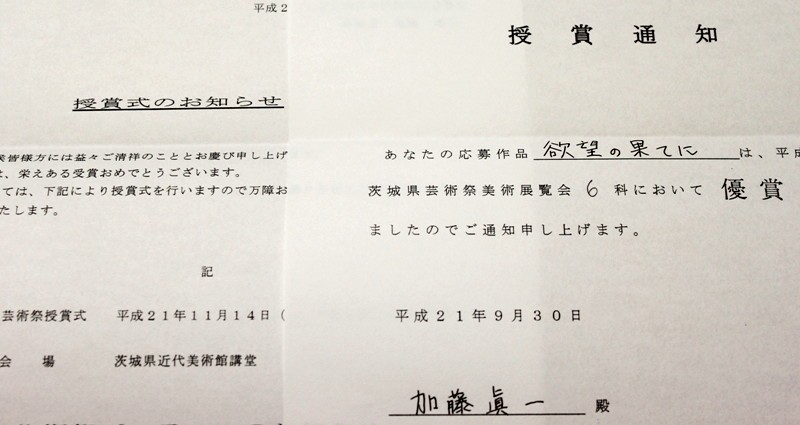 平成2
授賞式のお知らせ
皆様方には益々ご清祥のこととお慶び申し上げ
は、栄えある受賞おめでとうございます。
ては、下記により授賞式を行いますので万障お
たします。
記
芸術祭授賞式　平成21年11月14日（
会　場　茨城県近代美術館講堂
授賞通知
あなたの応募作品 欲望の果てに は、平成
茨城県芸術祭美術展覧会 6 科において 優賞
ましたのでご通知申し上げます。
平成21年9月30日
加藤眞一 殿